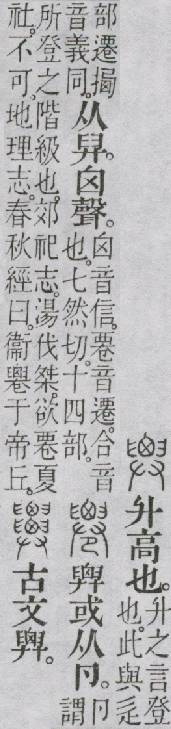 升高也。升之言登
也。此與辵
部遷揭
音義同。从舁。囟聲。囟音信。䙴音遷。合音
也。七然切。十四部。
𢍱或从卪。卪
謂
所登之階級也。郊祀志。湯伐桀。欲䙴夏
社。不可。地理志。春秋經曰。衞𢍱于帝丘。
古文𢍱。